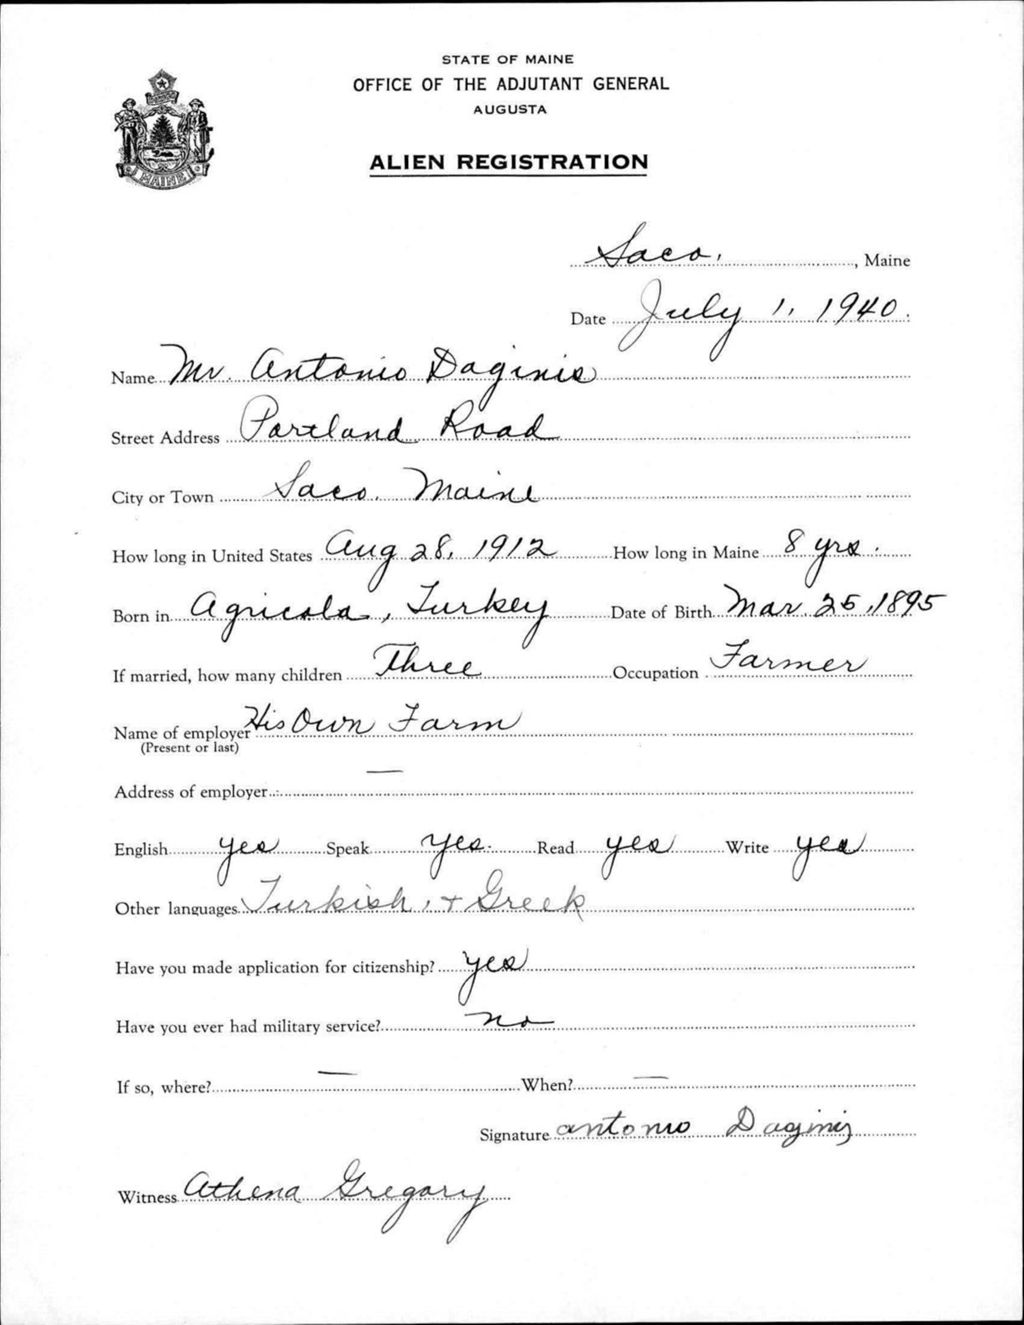 STATE OF MAINE
OFFICE OF THE ADJUTANT GENERAL
AUGUSTA
ALIEN REGISTRATION
MAINE
Saco, , Maine
Date July 1, 1940.
Name Mr. Antonio Daginis
Street Address Portland Road
City or Town Saco. Maine
How long in United States Aug 28, 1912 How long in Maine 8 yrs.
Born in Agricola, Turkey Date of Birth Mar. 25, 1895
If married, how many children Three Occupation Farmer
Name of employer His Own Farm
(Present or last)
Address of employer —
English yes Speak yes. Read yes Write yes
Other languages Turkish, + Greek
Have you made application for citizenship? yes
Have you ever had military service? no
If so, where? — When? —
Signature antonio Daginis
Witness Athena Gregory